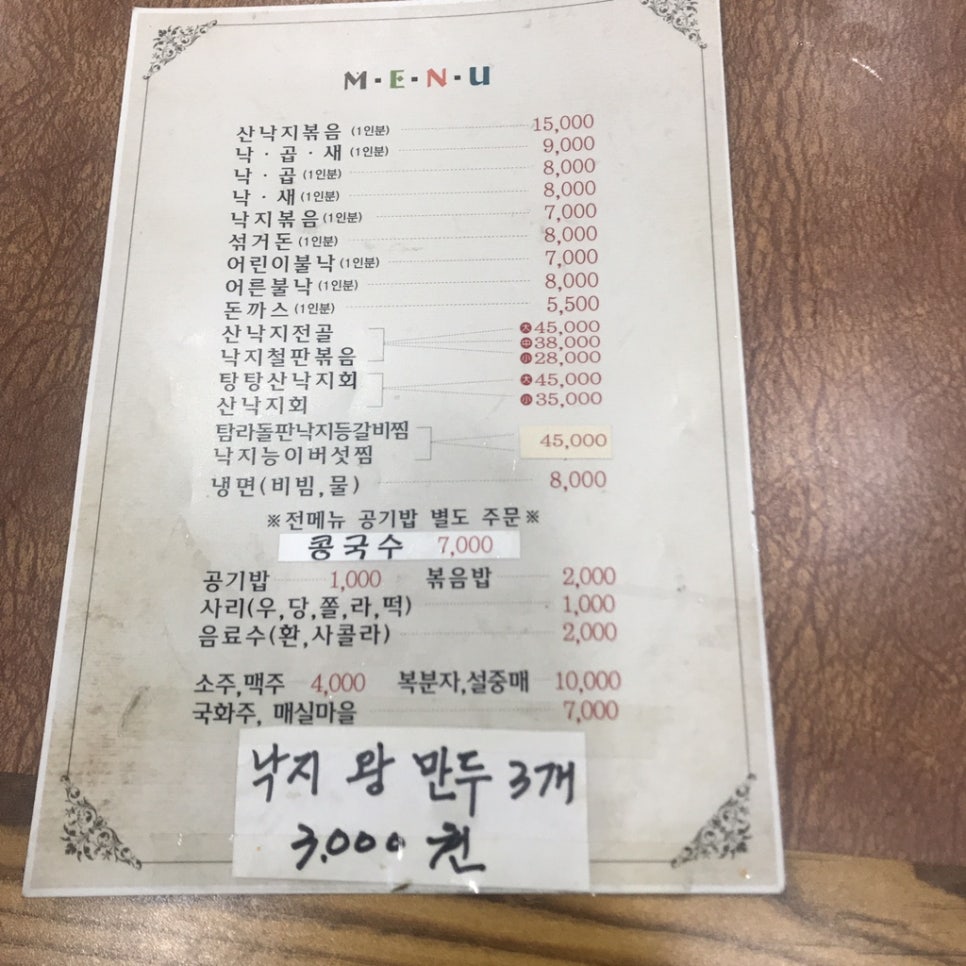 M·E·N·U
산낙지볶음 (1인분) 15,000
낙·곱·새 (1인분) 9,000
낙·곱 (1인분) 8,000
낙·새 (1인분) 8,000
낙지볶음 (1인분) 7,000
섞거돈 (1인분) 8,000
어린이불낙 (1인분) 7,000
어른불낙 (1인분) 8,000
돈까스 (1인분) 5,500
산낙지전골 大 45,000
中 38,000
낙지철판볶음 小 28,000
탕탕산낙지회 大 45,000
산낙지회 小 35,000
탐라돌판낙지등갈비찜
45,000
낙지능이버섯찜
냉면(비빔,물) 8,000
※전메뉴 공기밥 별도 주문※
콩국수 7,000
공기밥 1,000 볶음밥 2,000
사리(우,당,쫄,라,떡) 1,000
음료수(환,사콜라) 2,000
소주,맥주 4,000 복분자,설중매 10,000
국화주, 매실마을 7,000
낙지 왕 만두 3개
3,000 원